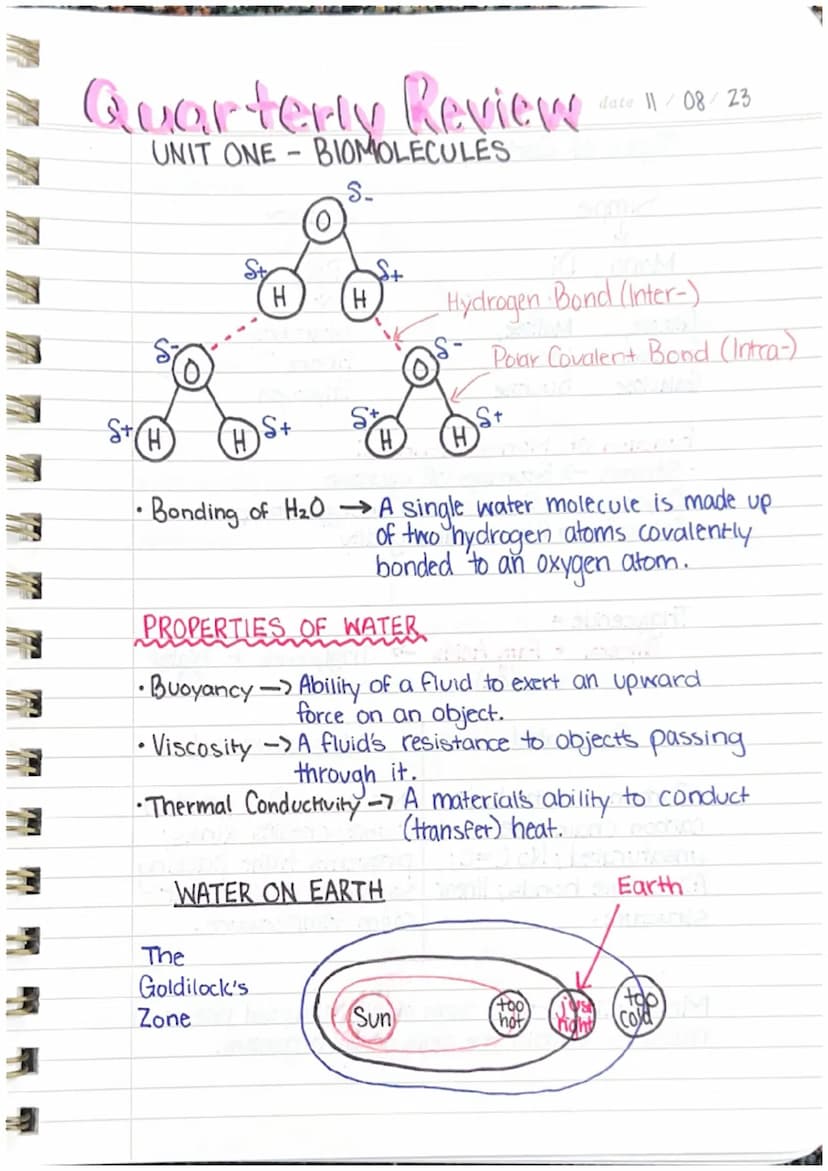 Quarterly Review date 11 / 08 / 23
UNIT ONE - BIOMOLECULES
δ-
O
δ+ δ+
H H
Hydrogen Bond (Inter-)
δ- δ-
O O
Polar Covalent Bond (Intra-)
δ+ H H δ+ δ+ H H δ+
• Bonding of H₂O → A single water molecule is made up
of two hydrogen atoms covalently
bonded to an oxygen atom.
PROPERTIES OF WATER
• Buoyancy → Ability of a fluid to exert an upward
force on an object.
• Viscosity → A fluid's resistance to objects passing
through it.
• Thermal Conductivity → A material's ability to conduct
(transfer) heat.
WATER ON EARTH
Earth
The
Goldilock's
Zone
Sun
too
hot
just
right
too
cold